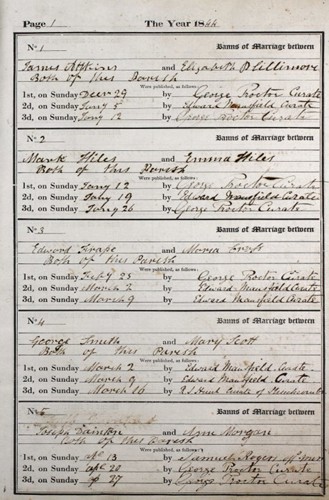 Page 1 The Year 1844
No. 1 Banns of Marriage between
James Atkins and Elizabeth Plillimore
Both of this Parish
Were published, as follows:
1st, on Sunday Decr 29 by George Proctor Curate
2d, on Sunday Jany 5 by Edward Mansfield Curate
3d, on Sunday Jany 12 by George Proctor Curate
No. 2 Banns of Marriage between
Mark Hiles and Emma Hiles
Both of this Parish
Were published, as follows:
1st, on Sunday Jany 12 by George Proctor Curate
2d, on Sunday Jany 19 by Edward Mansfield Curate
3d, on Sunday Jany 26 by George Proctor Curate
No. 3 Banns of Marriage between
Edward and Maria
Both of this Parish
Were published, as follows:
1st, on Sunday Feby 23 by George Proctor Curate
2d, on Sunday March 2 by Edward Mansfield Curate
3d, on Sunday March 9 by Edward Mansfield Curate
No. 4 Banns of Marriage between
George Smith and Mary Scott
Both of this Parish
Were published, as follows:
1st, on Sunday March 2 by Edward Mansfield Curate
2d, on Sunday March 9 by Edward Mansfield Curate
3d, on Sunday March 16 by Curate of
No. 5 Banns of Marriage between
Joseph Dainton and Ann Morgan
Both of this Parish
Were published, as follows:
1st, on Sunday Ap 13 by Samuel Rogers
2d, on Sunday Ap 20 by George Proctor Curate
3d, on Sunday Ap 27 by George Proctor Curate